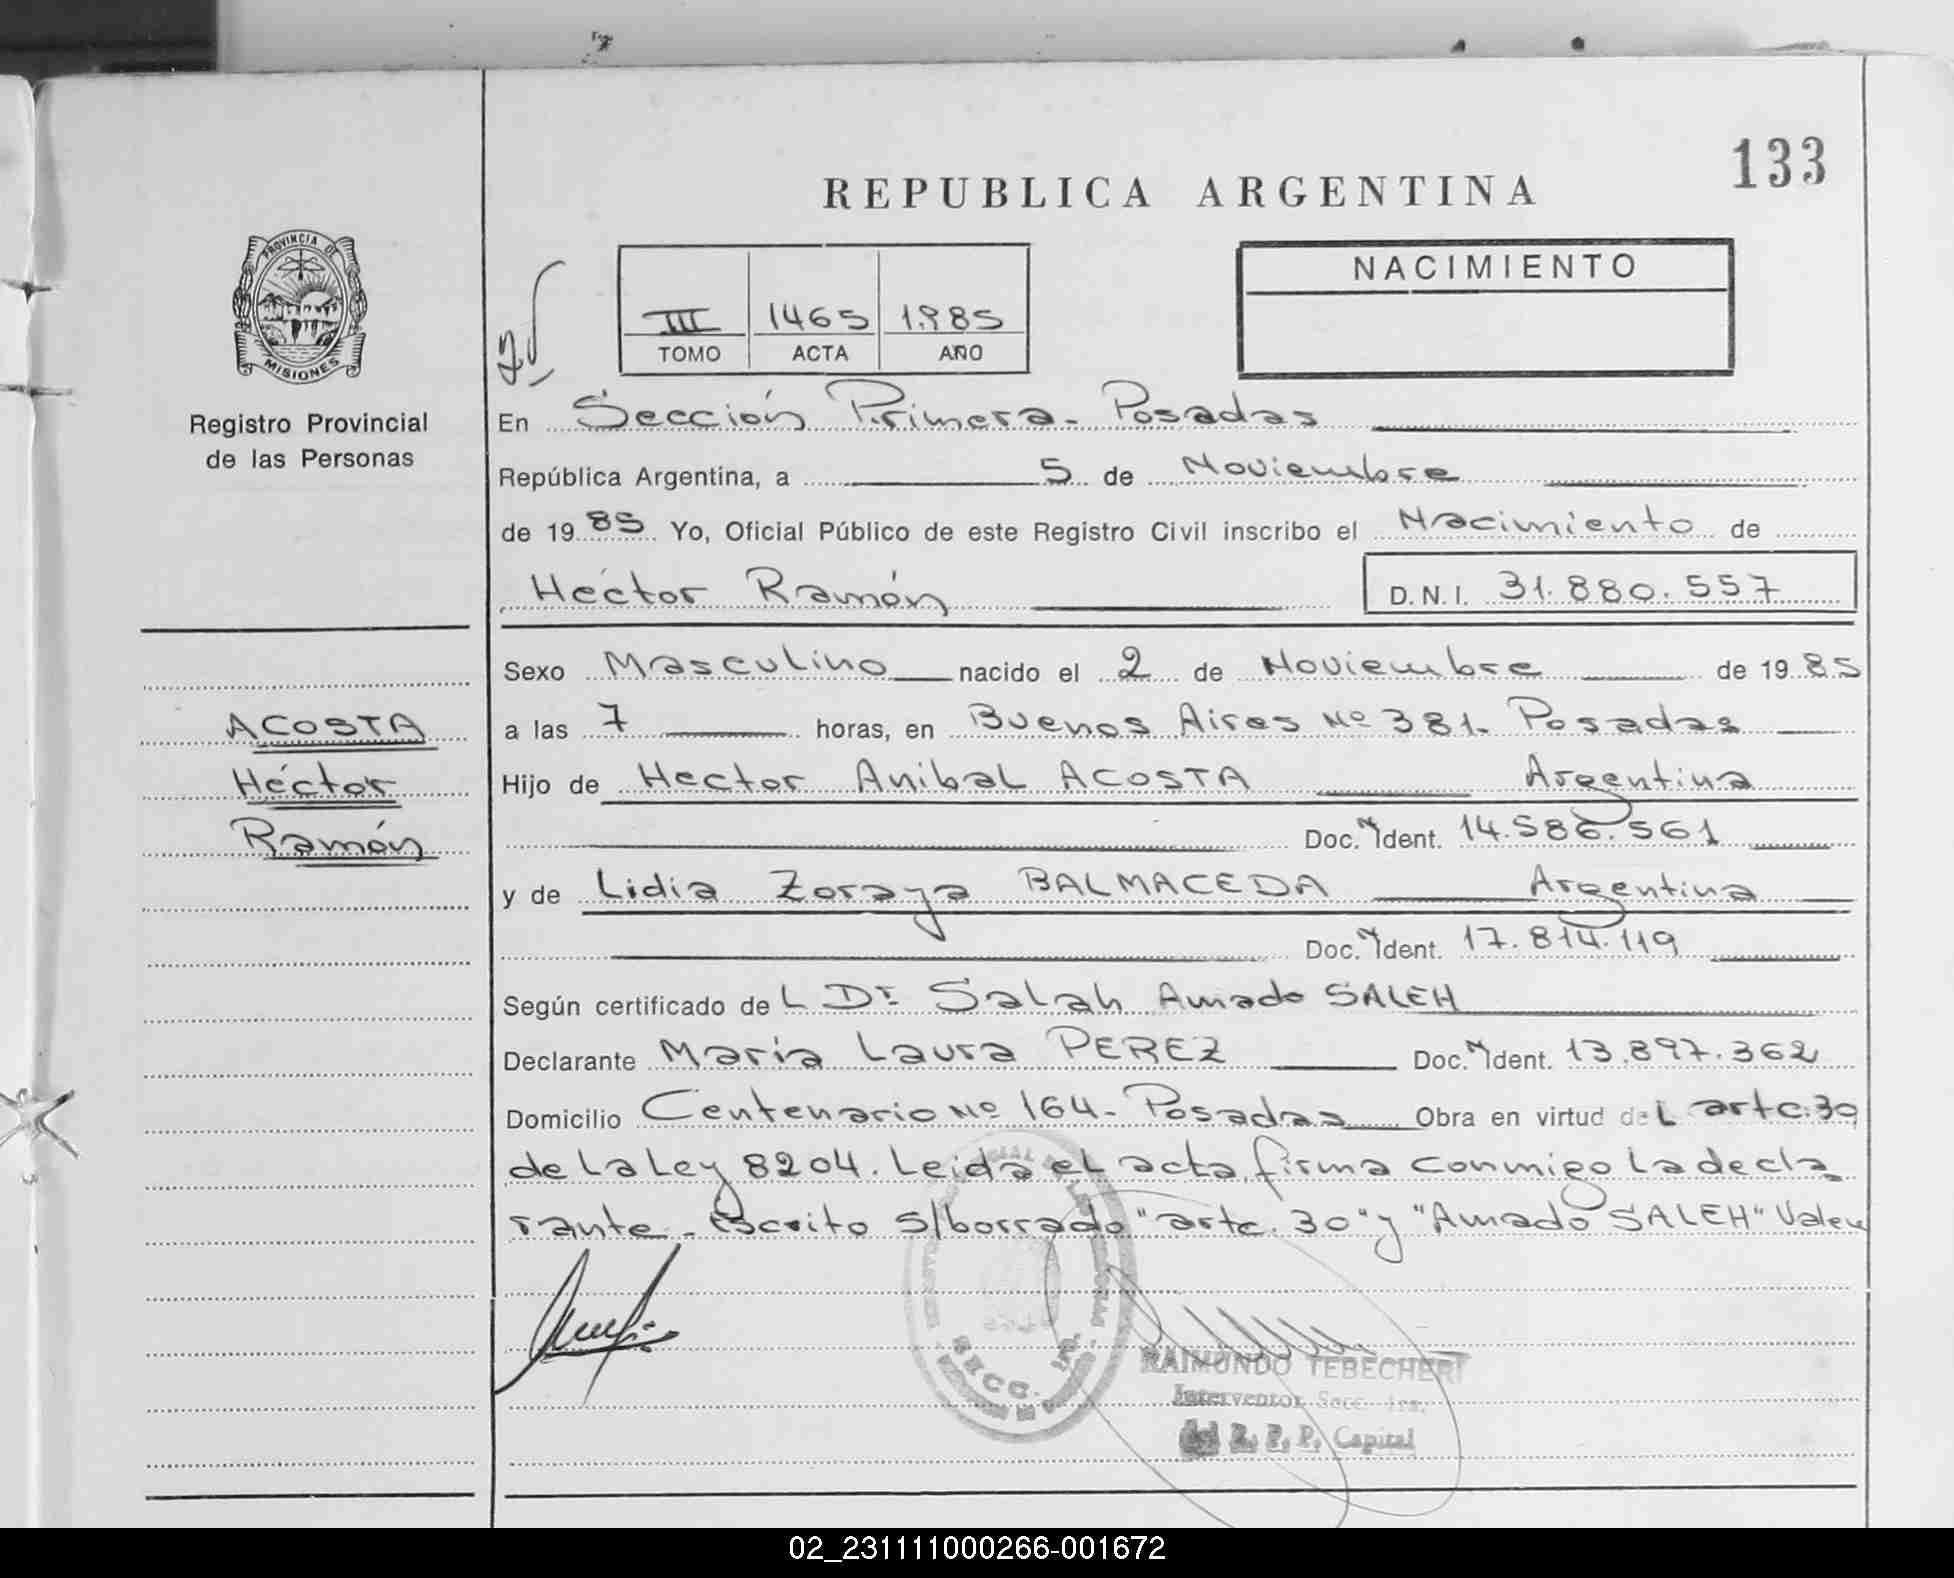 133
REPUBLICA ARGENTINA
PROVINCIA DE
MISIONES
Registro Provincial
de las Personas
III 1465 1985
TOMO ACTA AÑO
NACIMIENTO
En Sección Primera- Posadas
República Argentina, a 5 de Noviembre
de 1985 Yo, Oficial Público de este Registro Civil inscribo el Nacimiento de
Héctor Ramón D.N.I. 31.880.557
Sexo Masculino nacido el 2 de Noviembre de 1985
ACOSTA
Héctor
Ramón
a las 7 horas, en Buenos Aires Nº 381- Posadas
Hijo de Hector Anibal ACOSTA Argentina
Doc. N Ident. 14.586.561
y de Lidia Zoraya BALMACEDA Argentina
Doc. N Ident. 17.814.119
Según certificado de L Dr Salah Amado SALEH
Declarante María Laura PEREZ Doc. N Ident. 13.897.362
Domicilio Centenario Nº 164- Posadas Obra en virtud deL artc. 30
de La Ley 8204. Leida eL acta, firma conmigo La decla
rante- Escrito s/borrado "artc. 30" y "Amado SALEH" Valen
SECC. 1ra.
RAIMUNDO TEBECHERI
Interventor Secc. 1ra.
del R. P. P. Capital
02_231111000266-001672